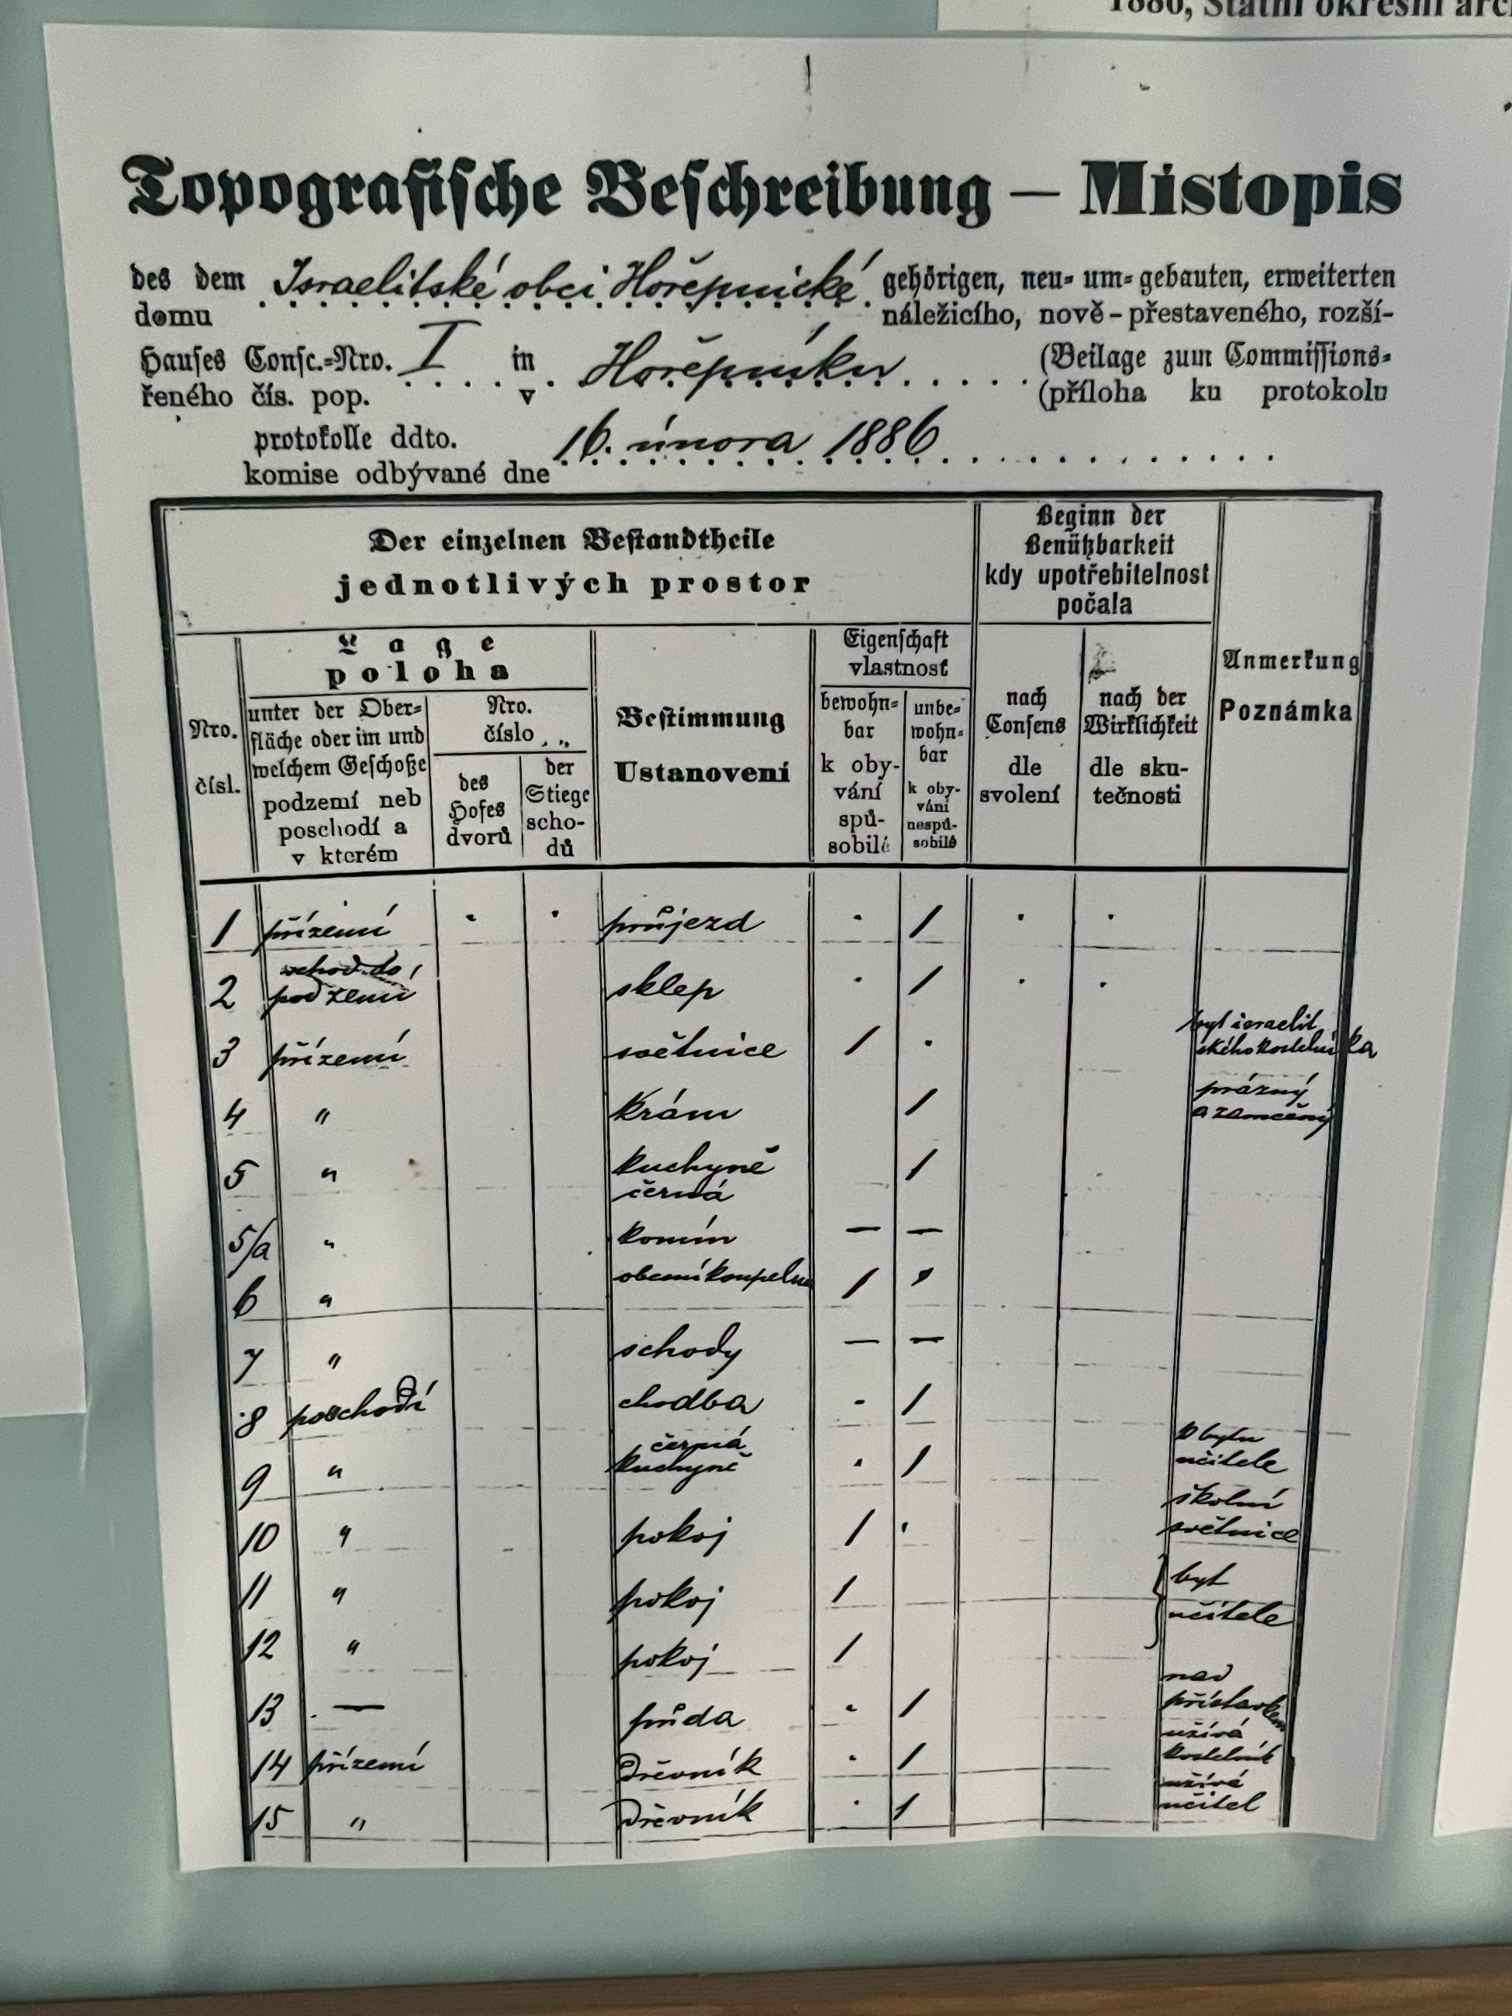 1886, Státní okresní arc
Topografische Beschreibung — Místopis
des dem Israelitské obci Hořepnické gehörigen, neu- um- gebauten, erweiterten
domu náležicího, nově - přestaveného, rozší-
Hauses Consc.-Nro. I in Hořepníku (Beilage zum Commissions-
řeného čís. pop. v (příloha ku protokolu
protokolle ddto. 16. února 1886
komise odbývané dne
Der einzelnen Bestandtheile
jednotlivých prostor
Beginn der
Benützbarkeit
kdy upotřebitelnost
počala
Nro.
čísl.
Lage
poloha
unter der Ober-
fläche oder im und
welchem Geschoße
podzemí neb
poschodí a
v kterém
Nro.
číslo
des
Hofes
dvorů
der
Stiege
scho-
dů
Bestimmung
Ustanovení
Eigenschaft
vlastnost
bewohn-
bar
k oby-
vání
spů-
sobilé
unbe-
wohn-
bar
k oby-
vání
nespů-
sobilé
nach
Consens
dle
svolení
nach der
Wirklichkeit
dle sku-
tečnosti
Anmerkung
Poznámka
1 přízemí · · průjezd · / · ·
2 vchod do podzemí sklep · / · ·
3 přízemí světnice / · byt israelit
ského kostelníka
4 " krám / prázný
a zamčený
5 " kuchyně
černá /
5/a " komín — —
6 " obecní koupelna / "
7 " schody — —
8 poschodí chodba - /
9 " černá
kuchyně · / k bytu
učitele
10 " pokoj / · školní
světnice
11 " pokoj / } byt
12 " pokoj / učitele
13 — půda - / nad
přístavkem
14 přízemí dřevník · / užívá
kostelník
15 " dřevník · / užívá
učitel